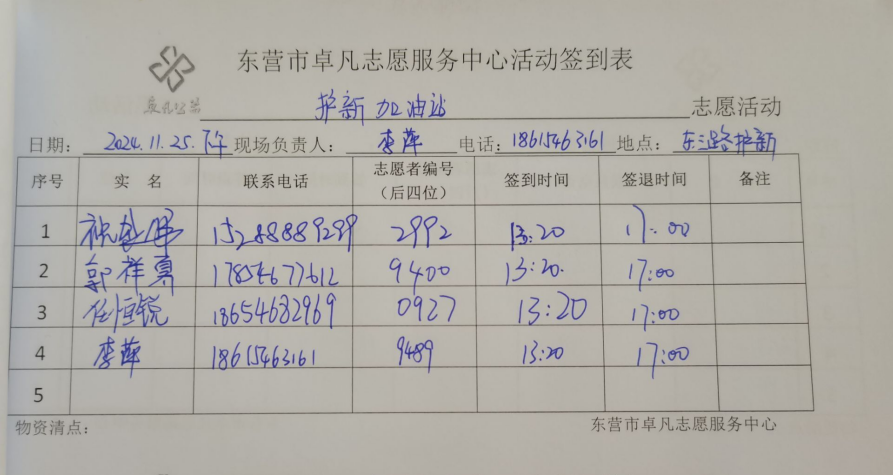 东营市卓凡志愿服务中心活动签到表
护新加油站 志愿活动
日期: 2024.11.25.下午 现场负责人: 李萍 电话: 18615463161 地点: 东三路护新
序号 实 名 联系电话 志愿者编号(后四位) 签到时间 签退时间 备注
1 15288889299 2992 13:20 17:00
2 郭祥勇 17854677612 9400 13:20. 17:00
3 任恒锐 18654682969 0927 13:20 17:00
4 李萍 18615463161 9489 13:20 17:00
5
物资清点: 东营市卓凡志愿服务中心